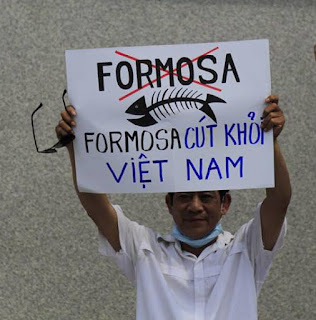 FORMOSA
FORMOSA CÚT KHỎI
VIỆT NAM